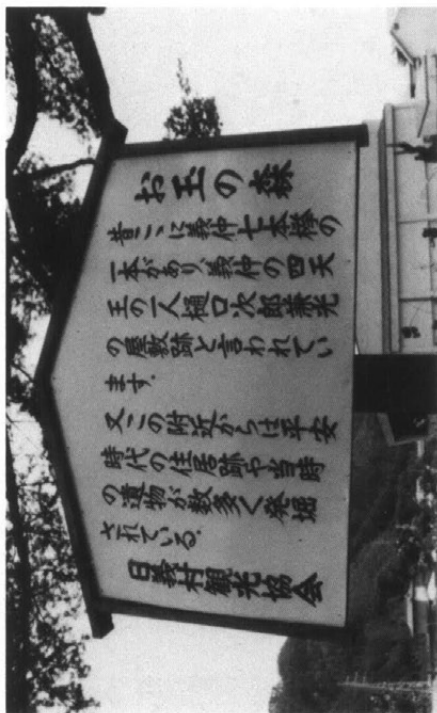 お玉の森
昔ここに義仲七本欅の
一本があり、義仲の四天
王の一人樋口次郎兼光
の屋敷跡と言われてい
ます.
又この附近からは平安
時代の住居跡や当時
の遺物が数多く発掘
されている.
日義村観光協会